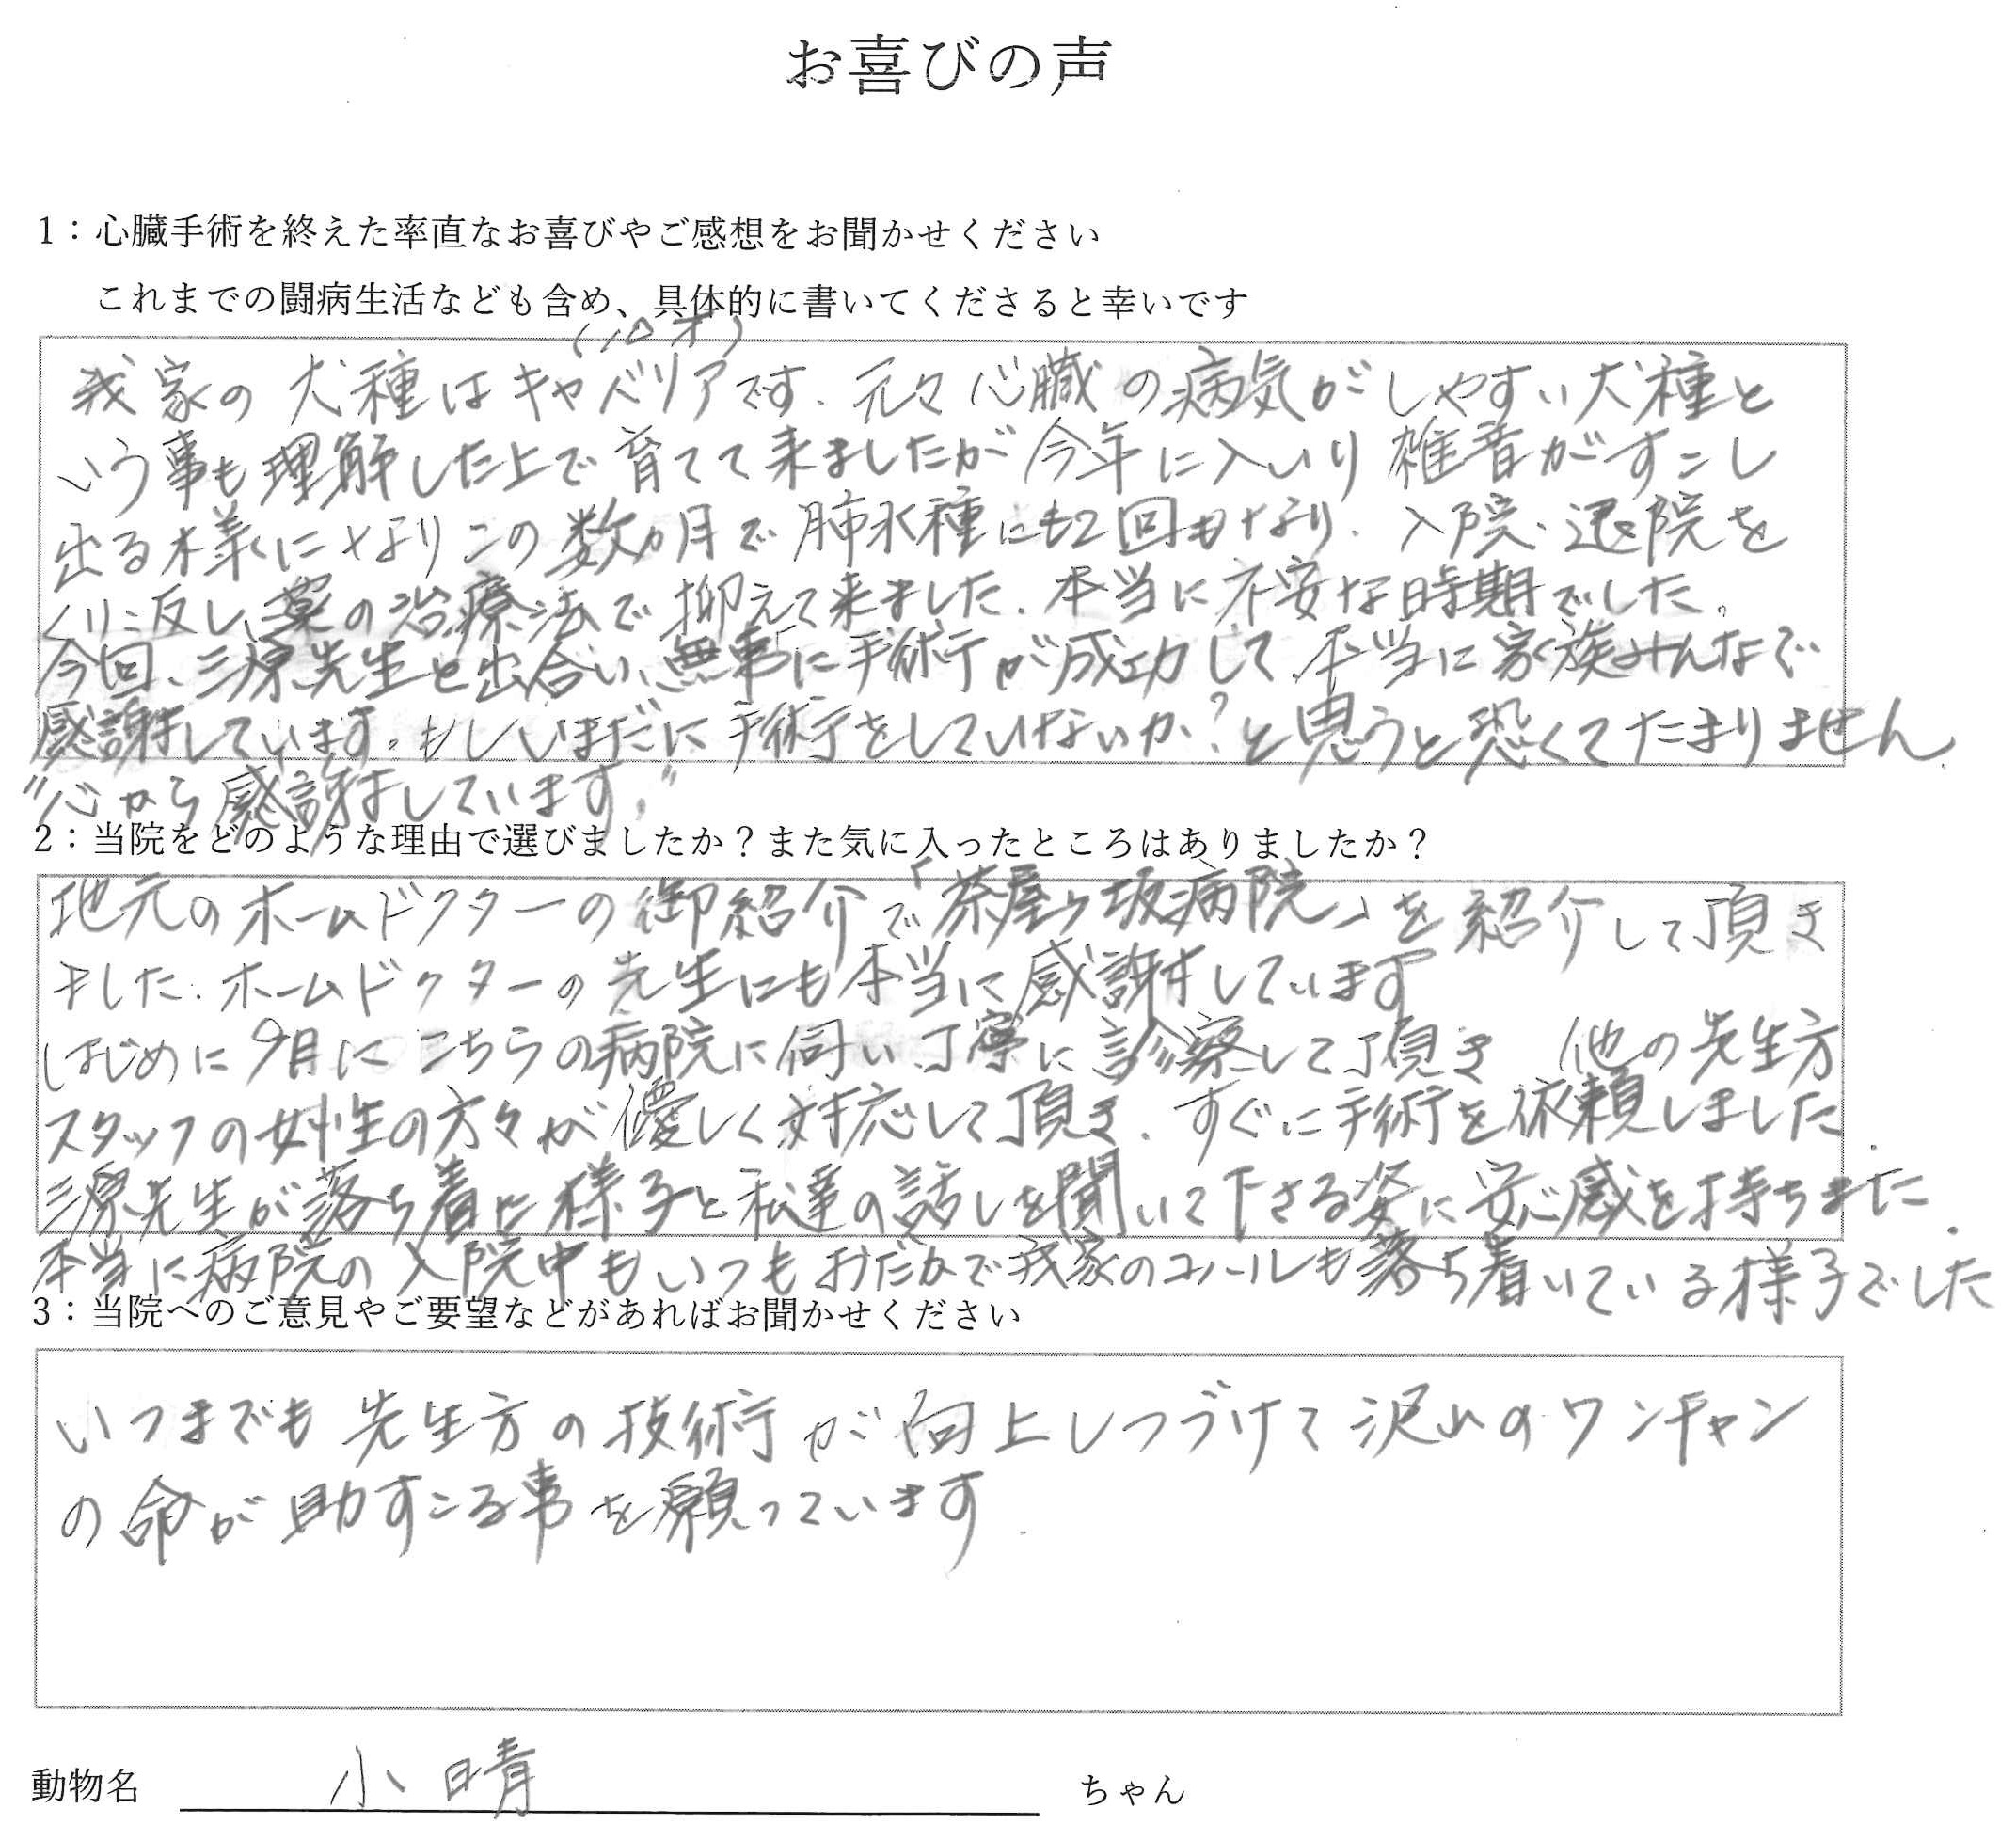 お喜びの声
1：心臓手術を終えた率直なお喜びやご感想をお聞かせください
これまでの闘病生活なども含め、具体的に書いてくださると幸いです
(10才)
我家の犬種はキャベリアです．元々心臓の病気がしやすい犬種と
いう事も理解した上で育てて来ましたが今年に入いり雑音がすこし
出る様になりこの数か月で肺水種にも2回もなり．入院・退院を
くりこ反し、薬の治療法で抑えて来ました．本当に不安な時期でした。
今回、三原先生と出合い、無事に手術が成功して、本当に家族みんなで
感謝しています。もしいまだに手術をしていないか?と思うと恐くてたまりません．
"心から感謝しています。"
2：当院をどのような理由で選びましたか？また気に入ったところはありましたか？
地元のホームドクターの御紹介で「茶屋ヶ坂病院」を紹介して頂き
ました．ホームドクターの先生にも本当に感謝しています
はじめに9月にこちらの病院に伺い、丁寧に診察して頂き 他の先生方
スタッフの女性の方々が優しく対応して頂き．すぐに手術を依頼しました．
三原先生が落ち着た様子と私達の話しを聞いて下さる姿に安心感を持ちました．
本当に病院の入院中もいつもおだかで我家のコハールも落ち着いている様子でした
3：当院へのご意見やご要望などがあればお聞かせください
いつまでも先生方の技術が向上しつづけて沢山のワンチャン
の命が助すこる事を願っています．
動物名 小晴 ちゃん